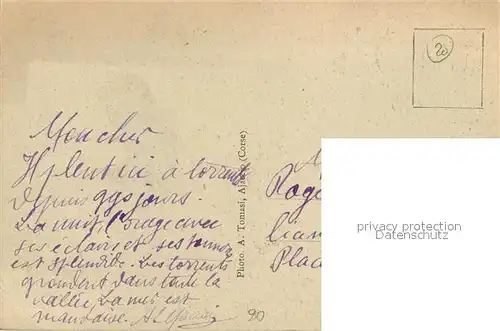 20
Mon cher
Il pleut ici à torrents
depuis qqs jours.
La nuit, l'orage avec
ses éclairs et ses tonnerres
est splendide. Les torrents
grondent dans toute la
vallée. La mer est
mauvaise.
Photo. A. Tomasi, Ajaccio (Corse)
Plac
privacy protection
Datenschutz